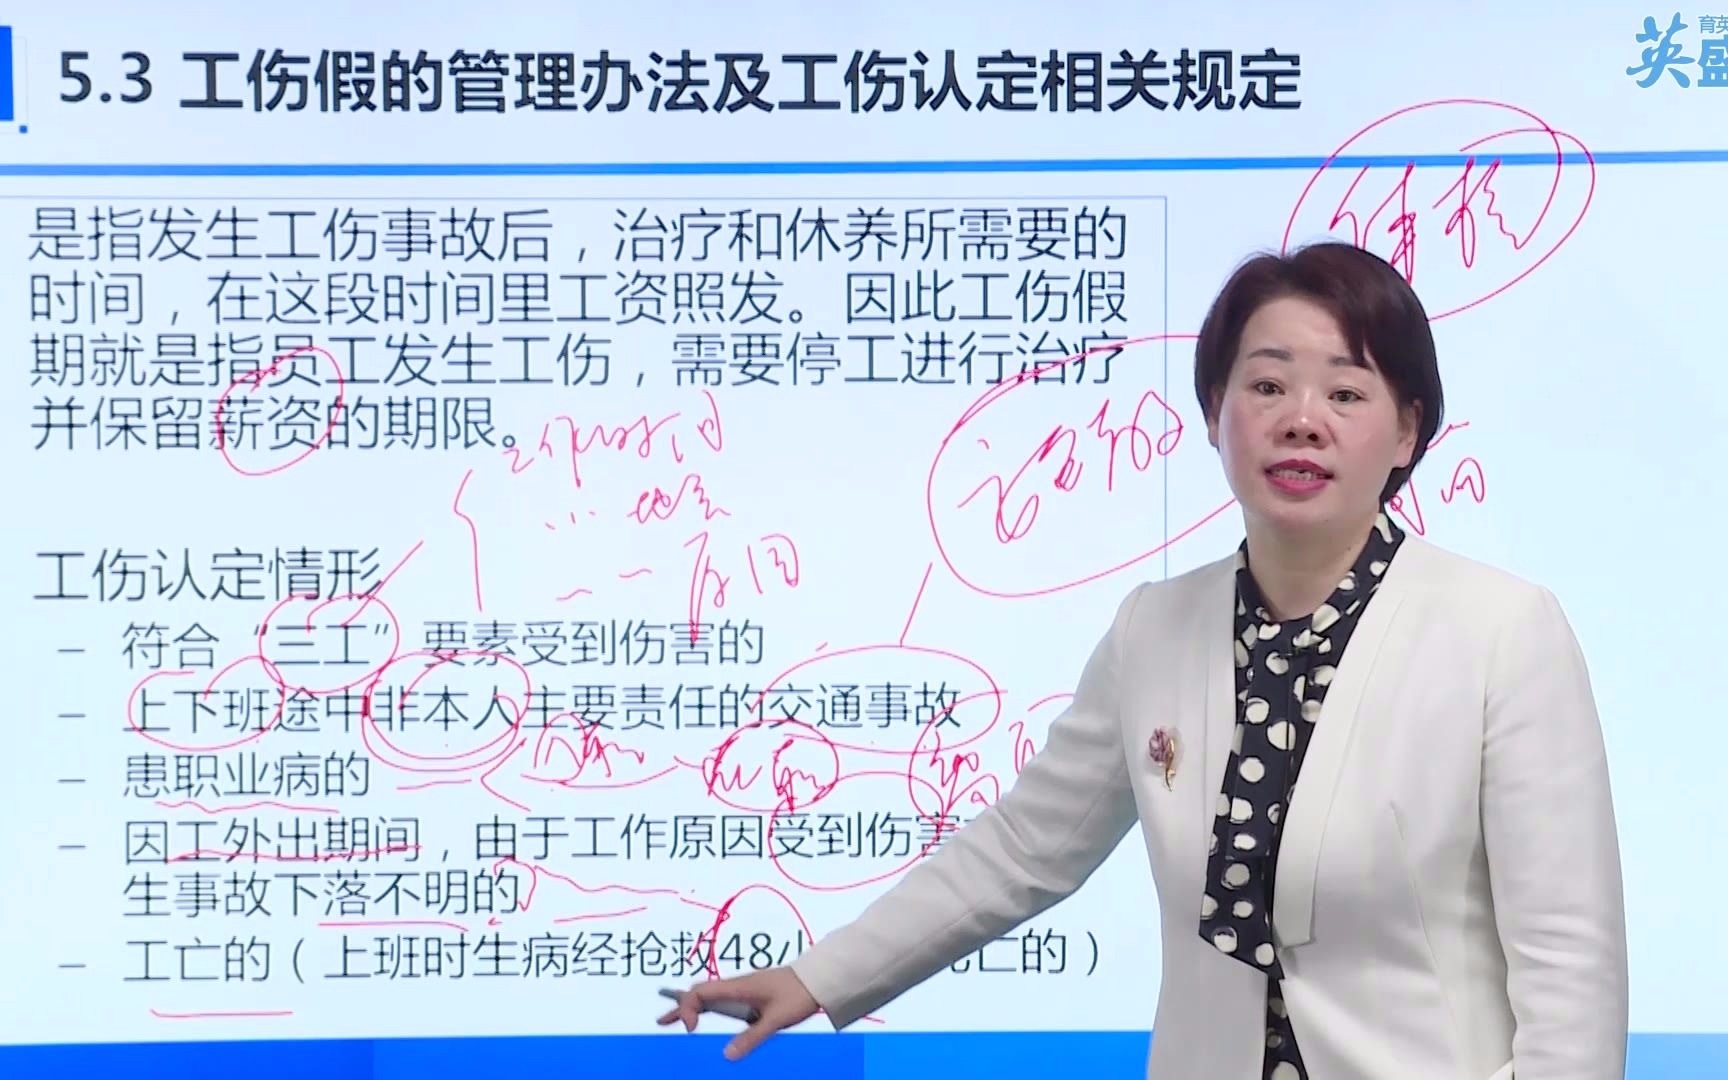 5.3 工伤假的管理办法及工伤认定相关规定
育英
英盛
体检
是指发生工伤事故后，治疗和休养所需要的
时间，在这段时间里工资照发。因此工伤假
期就是指员工发生工伤，需要停工进行治疗
并保留薪资的期限。
工作时间
地点
原因
时间
工伤认定情形
– 符合“三工”要素受到伤害的
– 上下班途中非本人主要责任的交通事故
– 患职业病的
– 因工外出期间，由于工作原因受到伤害
生事故下落不明的
– 工亡的（上班时生病经抢救48小
亡的）